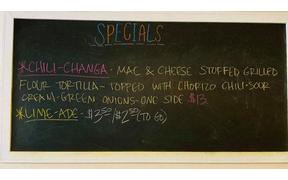 SPECIALS
*CHILI-CHANGA- MAC & CHEESE STUFFED GRILLED
FLOUR TORTILLA- TOPPED WITH CHORIZO CHILI-SOUR
CREAM-GREEN ONIONS-ONE SIDE $13
*LIME-ADE- $3.50/$2.50(TO GO)